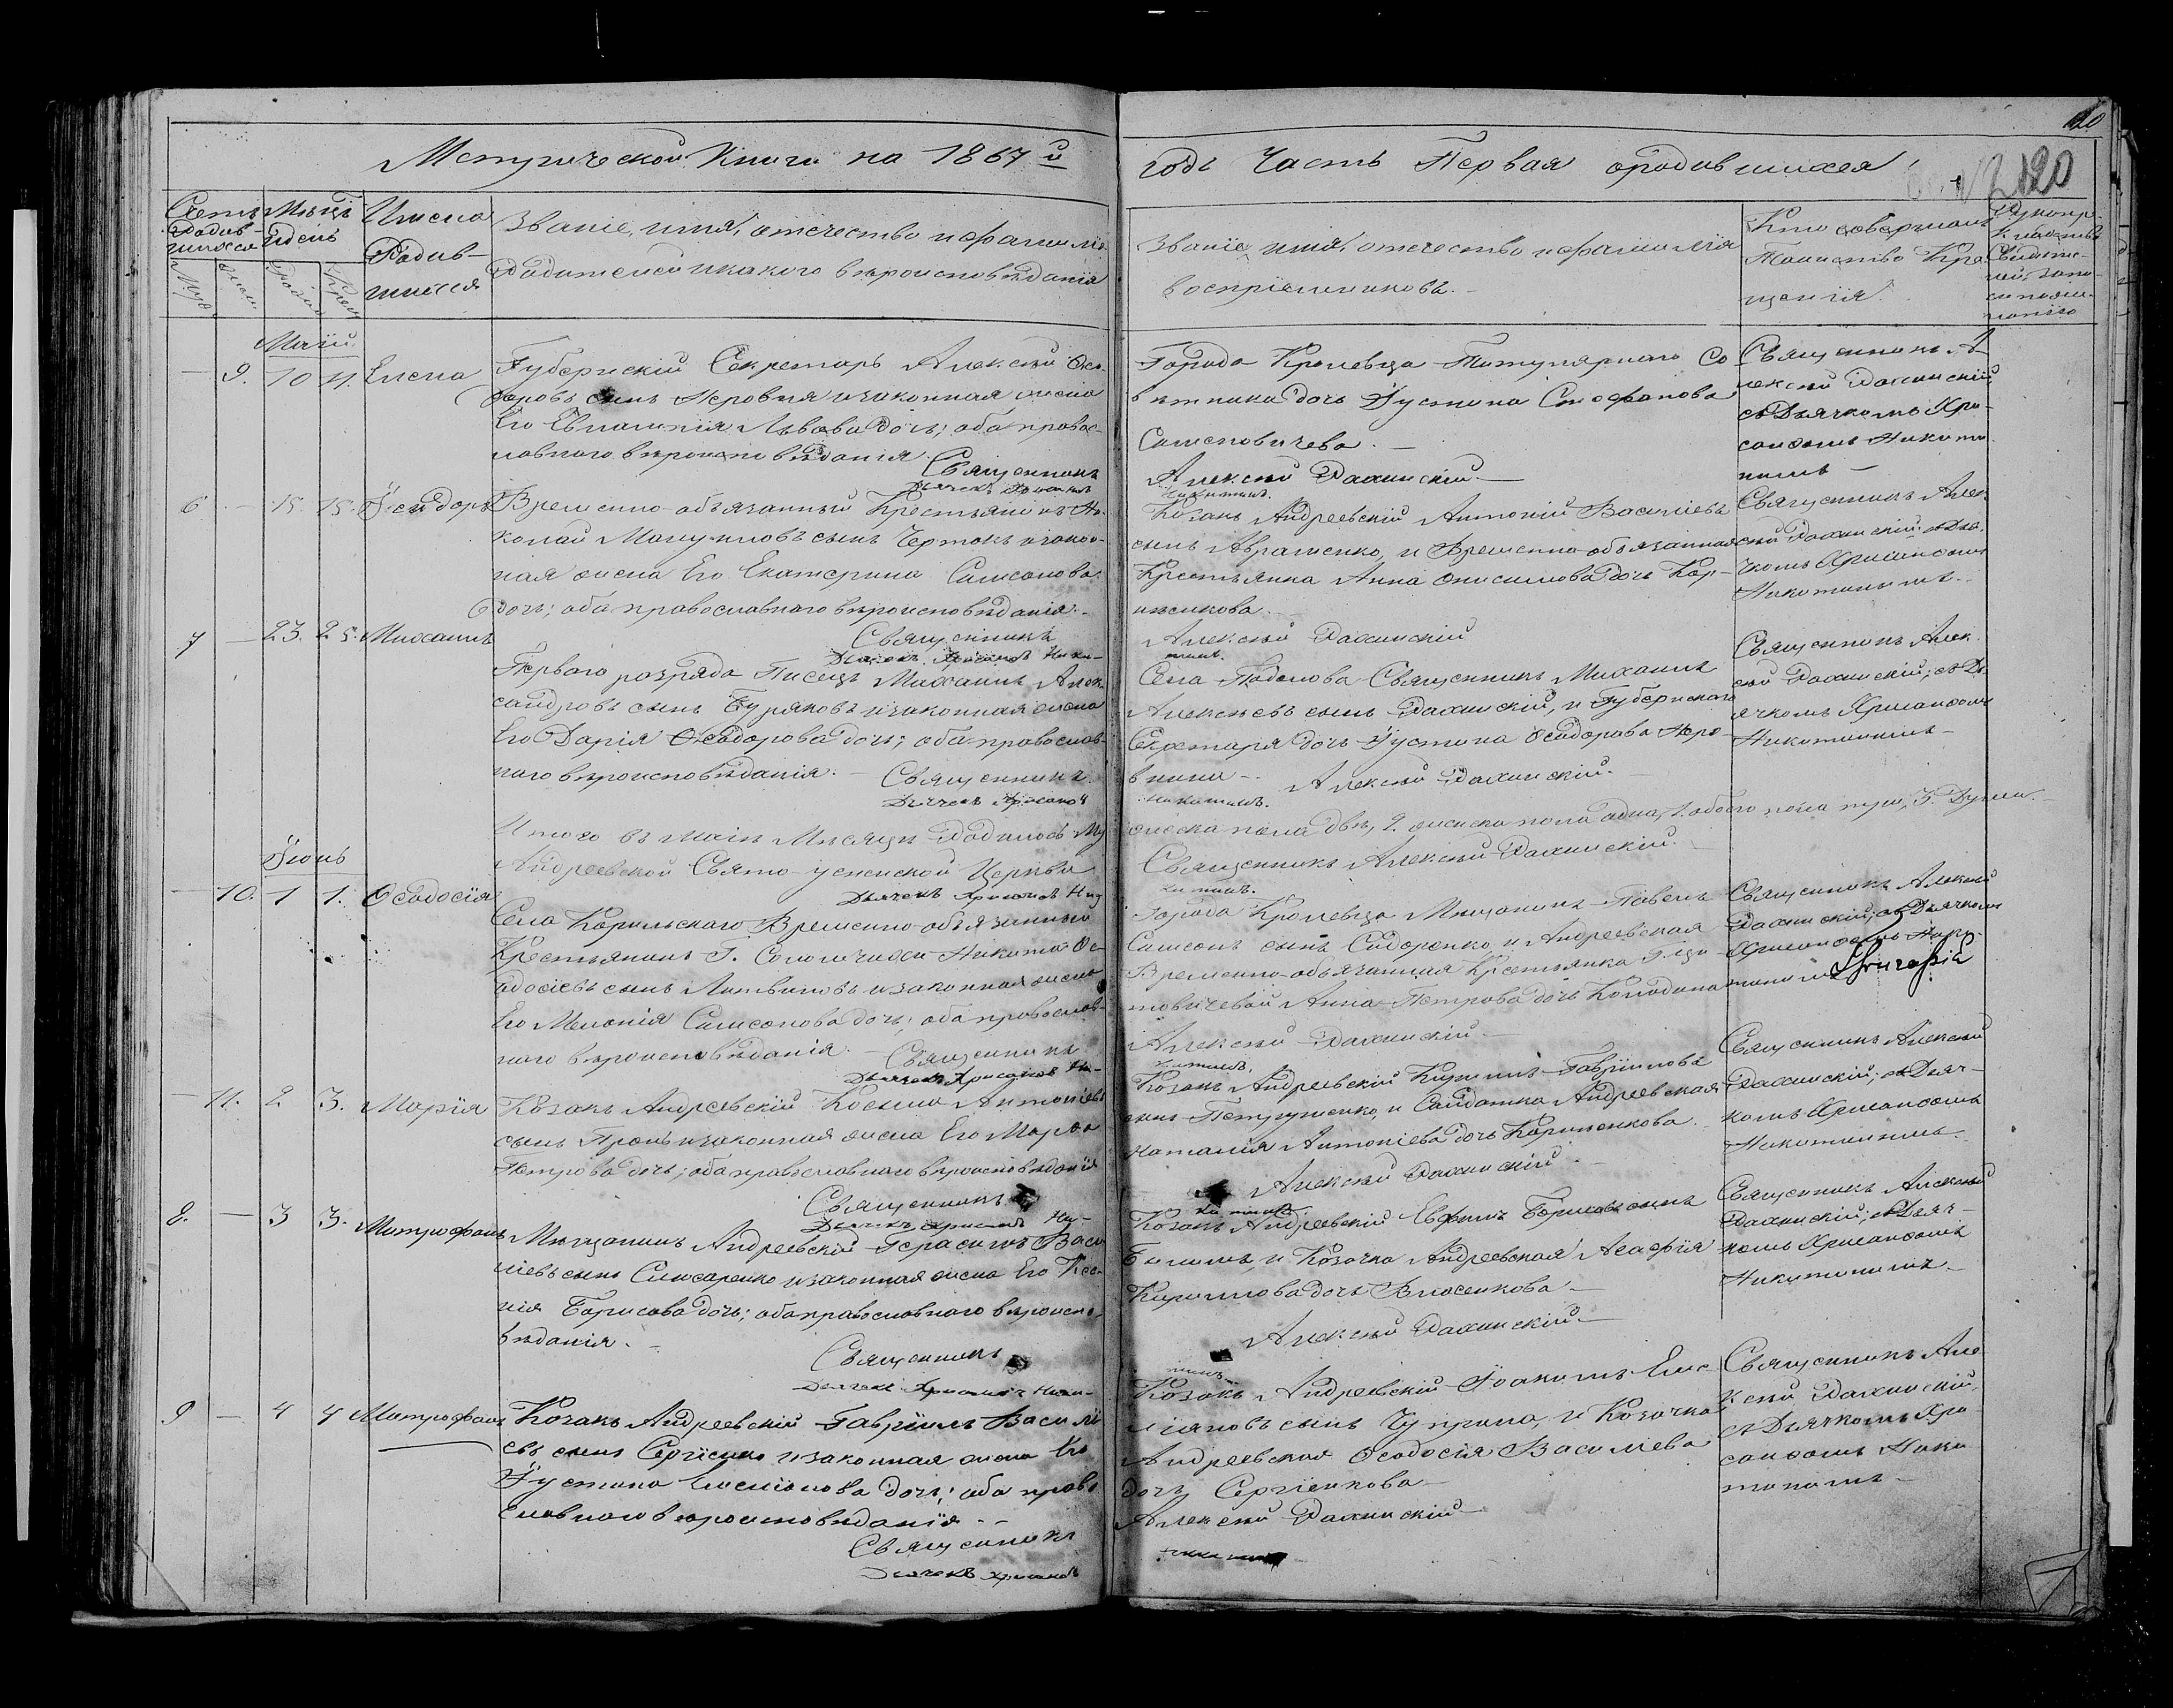 120
Метрической Книги на 1867й
годъ Часть Первая ородившихся
120
Счетъ Родив-шихся
Муж. Женс.
Мѣсцъ и день
Рожден. Крещ.
Имена Родив-шихся
Званіе, имя, отечество и фамилія
Родителей и какого вѣроисповѣданія
Званіе имя, отечество и фамилія
Воспріемниковъ.
Кто совершалъ
Таинство Кре-
щенія.
Май.
— 9. 10 11. Елена
Губернскій Секретарь Алексѣй Ѳео-
доровъ сынъ и законная жена
Его Евлампія Львова дочь; оба правос-
лавнаго вѣроисповѣданія.
Священникъ
Дьячекъ Хрисанфъ
Города Кролевца Титулярнаго Со
вѣтника дочь Іустина Стефанова
Самсоновичева. —
Алексѣй
Никитинъ.
Священникъ А-
лексѣй
съ Дьячкомъ Хри-
санфомъ Никити-
нымъ —
6 — 15. 15. Ісидоръ
Временно-обязанный Крестьянинъ Ни-
колай сынъ и закон-
ная жена Его Екатерина Самсонова
дочь; оба православнаго вѣроисповѣданія. -
Священникъ
Дьячекъ Хрисанфъ Ники-
Козакъ Андреевскій Антоній Василіевъ
сынъ Авраменко, и Временно-обязанная
Крестьянка Анна Онисимова дочь Кор-
нѣенкова.
Алексѣй
тинъ.
Священникъ Алек-
сѣй съ Дья-
чкомъ Хрисанфомъ
Никитинымъ. -
7 — 23. 25. Михаилъ
Перваго розряда Писецъ Михаилъ Алек-
сандровъ сынъ Буряковъ и законная жена
Его Дарія Ѳеодорова дочь; оба православ-
наго вѣроисповѣданія. —
Священникъ
Дьячекъ Хрисанфъ
Села Священникъ Михаилъ
Алексѣевъ сынъ и Губернскаго
Секретаря дочь Іустина Ѳеодорова
Алексѣй
Никитинъ.
Священникъ Алек-
сѣй съ Дь-
ячкомъ Хрисанфомъ
Никитинымъ —
Итого въ маѣ Мѣсяцѣ Родилось Му
жеска пола двѣ, 2. женска пола одна, 1. обоего пола три, 3. Души. —
Андреевской Свято-Успенской Церкви
Священникъ Алексѣй
Дьячекъ Хрисанфъ Ни
китинъ.
Іюнь
— 10. 1 1. Ѳеодосія
Села Временно-обязанный
Крестьянинъ Г. Никита Ѳе-
одосіевъ сынъ Литвиновъ и законная жена
Его Меланія Самсонова дочь; оба православ-
наго вѣроисповѣданія. —
Священникъ
Дьячекъ Хрисанфъ Ни-
Города Кролевца Мѣщанинъ Павелъ
Самсонъ сынъ Сидоренко и Андреевская
Временно-обязанная Крестьянка
Анна Петрова дочь
Алексѣй
китинъ.
Священникъ Алексѣй
съ Дьячкомъ
Хрисанфомъ Ники-
тинымъ
— 11. 2 3. Марія
Козакъ Андреевскій Косьма Антоніевъ
сынъ и законная жена Его Марфа
Петрова дочь; оба православнаго вѣроисповѣданія
Священникъ
Дьячекъ Хрисанфъ Ни-
Козакъ Андреевскій Кириллъ Гавріиловъ
сынъ Петрушенко, и Солдатка Андреевская
Наталія Антоніева дочь
Алексѣй
китинъ.
Священникъ Алексѣй
съ Дьяч-
комъ Хрисанфомъ
Никитинымъ.
8. — 3 3. Митрофанъ
Мѣщанинъ Андреевскій Герасимъ Васи
ліевъ сынъ Слюсаренко и законная жена Его Ксе-
нія Борисова дочь; оба православнаго вѣроиспо-
вѣданія. —
Священникъ
Дьячекъ Хрисанфъ Ники-
Козакъ Андреевскій Евфимъ Борисовъ сынъ
и Козачка Андреевская Агафія
Кириллова дочь Власенкова —
Алексѣй
тинъ.
Священникъ Алексѣй
съ Дьяч-
комъ Хрисанфомъ
Никитинымъ. —
9 — 4 4 Митрофанъ
Козакъ Андреевскій Гавріилъ Василі
евъ сынъ Сергіенко и законная жена Его
Іустина дочь; оба право
славнаго вѣроисповѣданія - -
Священникъ
Дьячекъ Хрисанфъ
Козакъ Андреевскій Іоакимъ Еме
ліановъ сынъ Чуприна, и Козачка
Андреевская Ѳеодосія Василіева
дочь Сергіенкова —
Алексѣй
Священникъ Але
ксѣй
съ Дьячкомъ Хри-
санфомъ Ники
тинымъ —